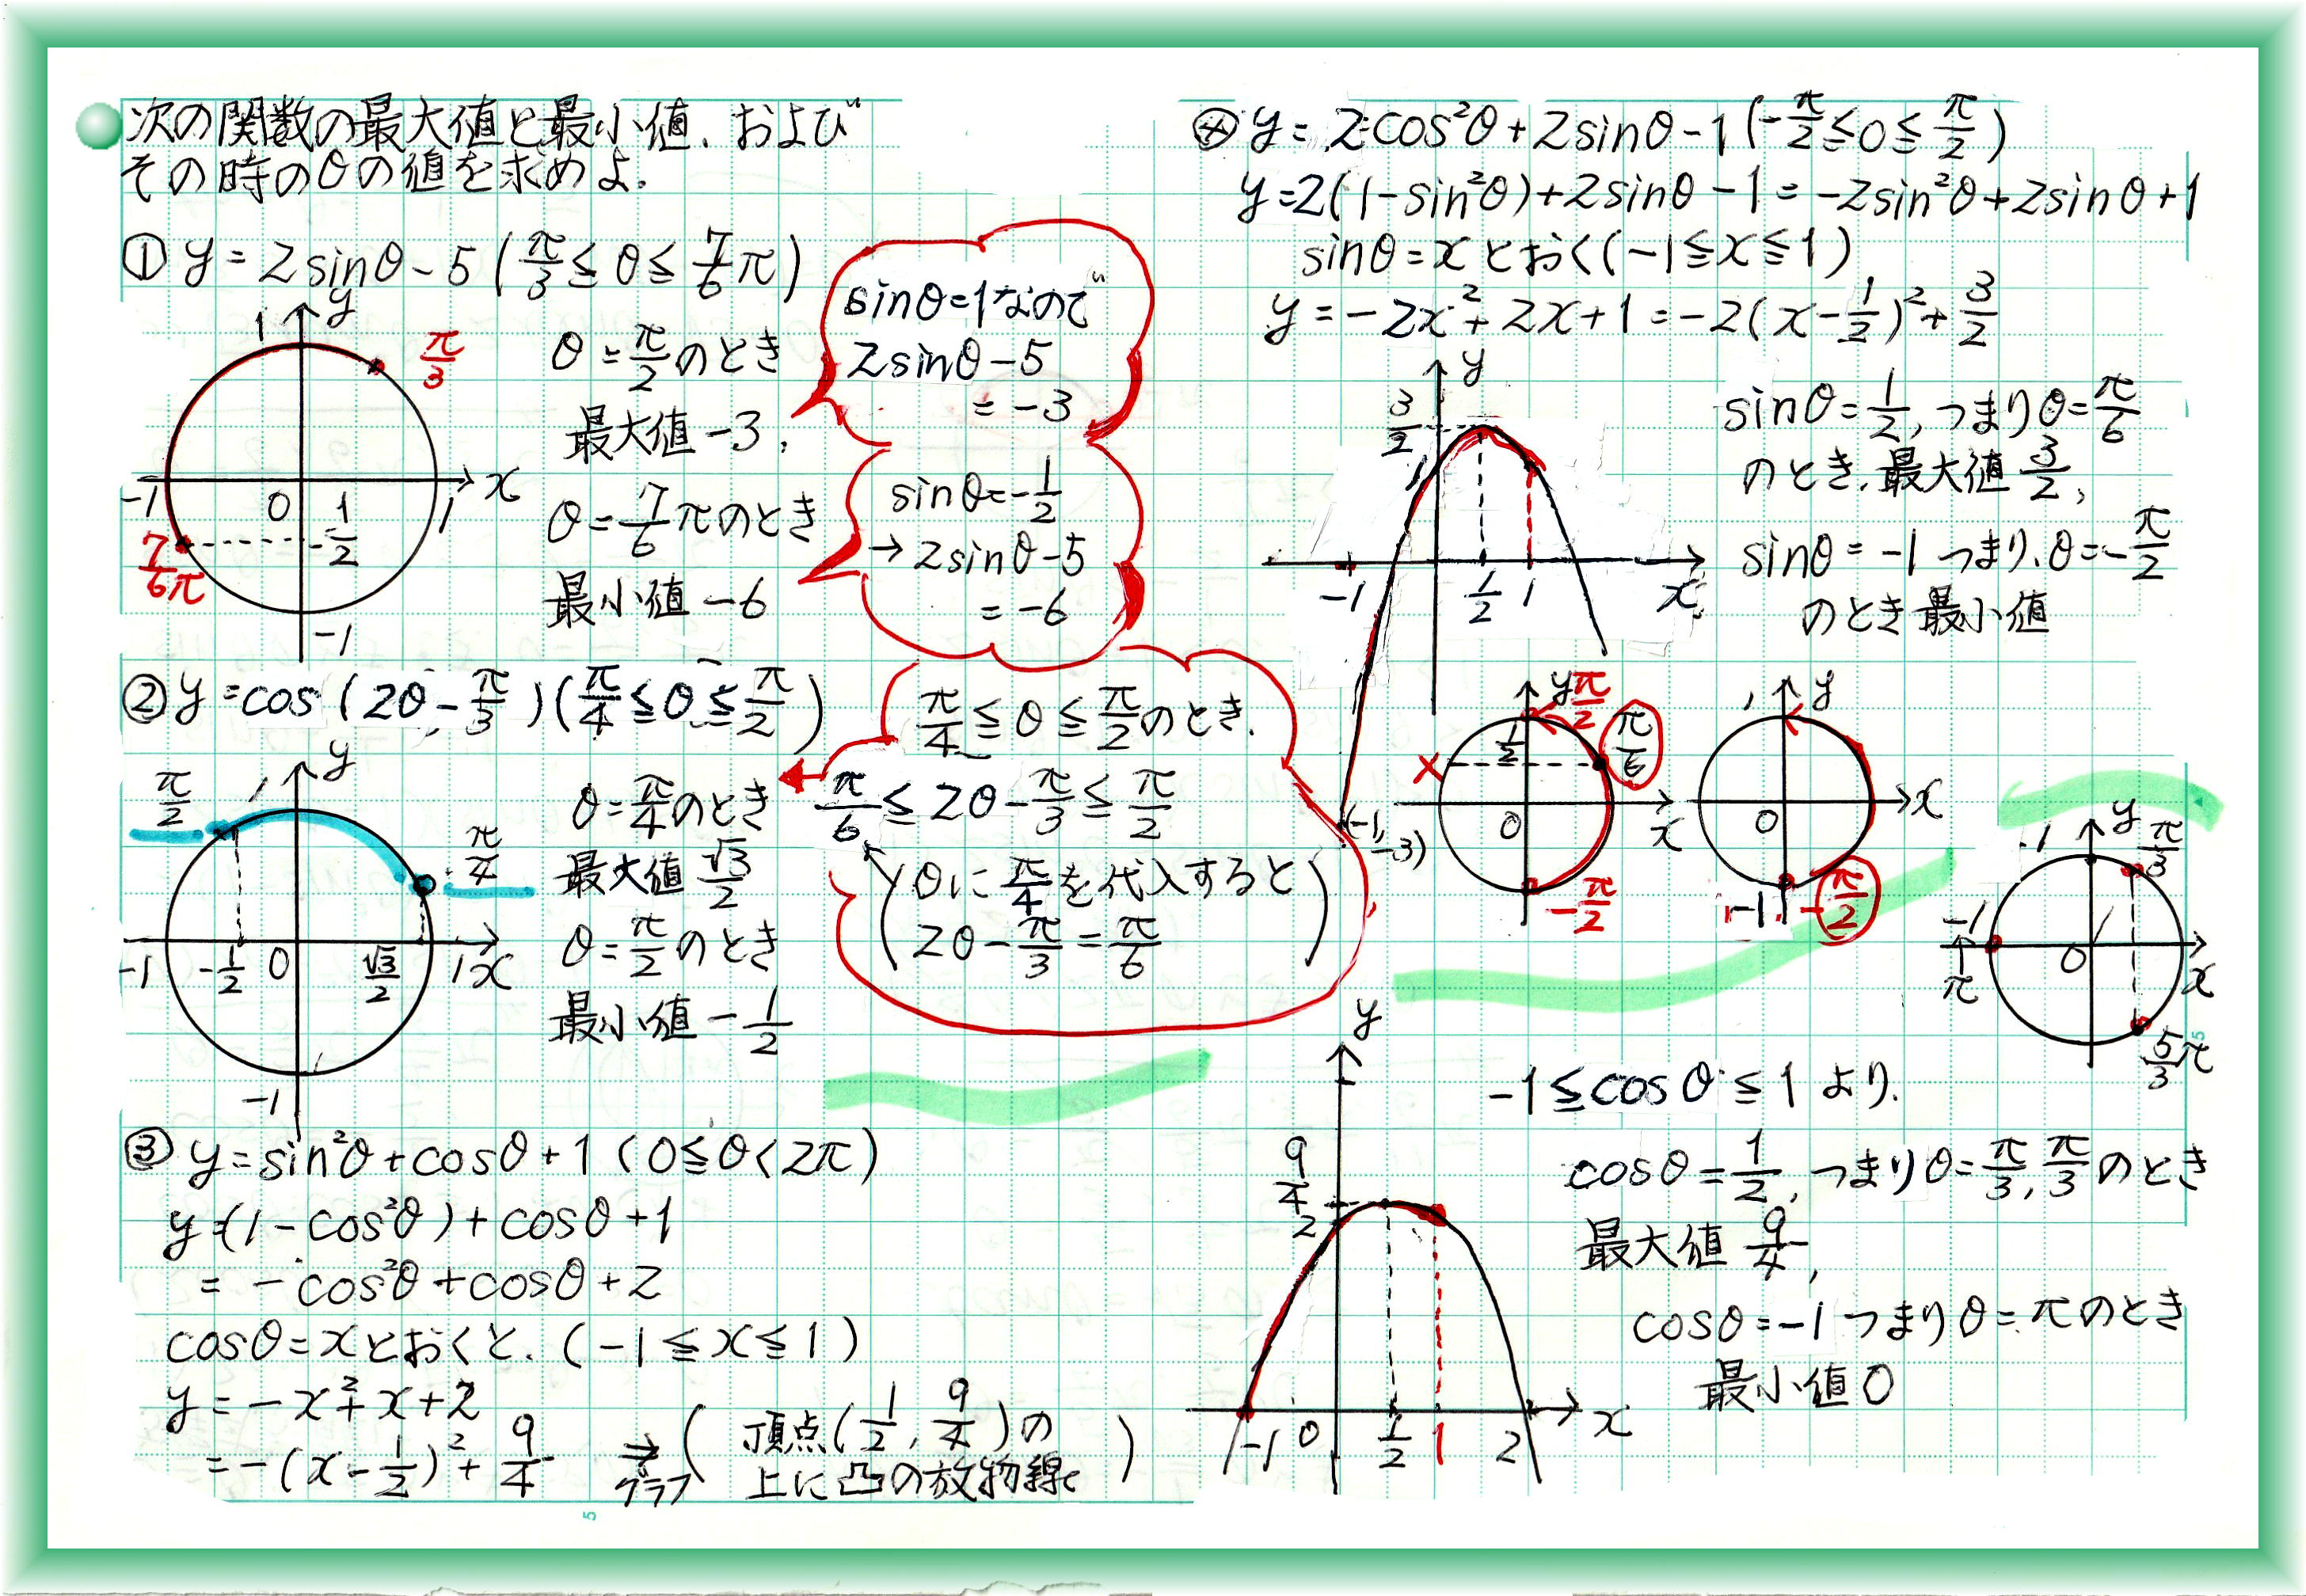 次の関数の最大値と最小値、および
その時のθの値を求めよ.
① y = 2sinθ-5 (π/3 ≦ θ ≦ 7/6π)
1 y
π/3
-1 0 -1/2 1 x
7/6π
-1
θ = π/2のとき
最大値 -3,
θ = 7/6πのとき
最小値 -6
sinθ=1なので
2sinθ-5
= -3
sinθ=-1/2
→2sinθ-5
= -6
② y = cos (2θ-π/3) (π/4 ≦ θ ≦ π/2)
π/2 1 y
π/4
-1 -1/2 0 √3/2 1 x
-1
θ = π/4のとき
最大値 √3/2
θ = π/2のとき
最小値 -1/2
π/4 ≦ θ ≦ π/2のとき.
π/6 ≦ 2θ-π/3 ≦ π/2
(θに π/4 を代入すると
2θ-π/3 = π/6)
③ y = sin²θ+cosθ+1 (0≦θ<2π)
y=(1-cos²θ)+cosθ+1
= -cos²θ+cosθ+2
cosθ=xとおくと、(-1≦x≦1)
y = -x²+x+2
= -(x-1/2)²+9/4
⇒ グラフ
(頂点(1/2, 9/4)の
上に凸の放物線)
④ y = 2cos²θ+2sinθ-1 (-π/2≦θ≦π/2)
y=2(1-sin²θ)+2sinθ-1 = -2sin²θ+2sinθ+1
sinθ=xとおく(-1≦x≦1)
y = -2x²+2x+1 = -2(x-1/2)²+3/2
y
3/2
1
-1 1/2 1 x
(-1, -3)
sinθ=1/2, つまりθ=π/6
のとき、最大値 3/2,
sinθ = -1 つまり、θ=-π/2
のとき最小値
y π/2
1/2 π/6
×
0 x
-π/2
1 y
0 x
-1 -π/2
1 y π/3
-1 0 x
↑
π
5/3π
y
9/4
2
-1 0 1/2 1 2 x
-1≦cosθ≦1 より.
cosθ=1/2, つまりθ=π/3, π/3 のとき
最大値 9/4,
cosθ=-1 つまりθ=πのとき
最小値 0
5
5